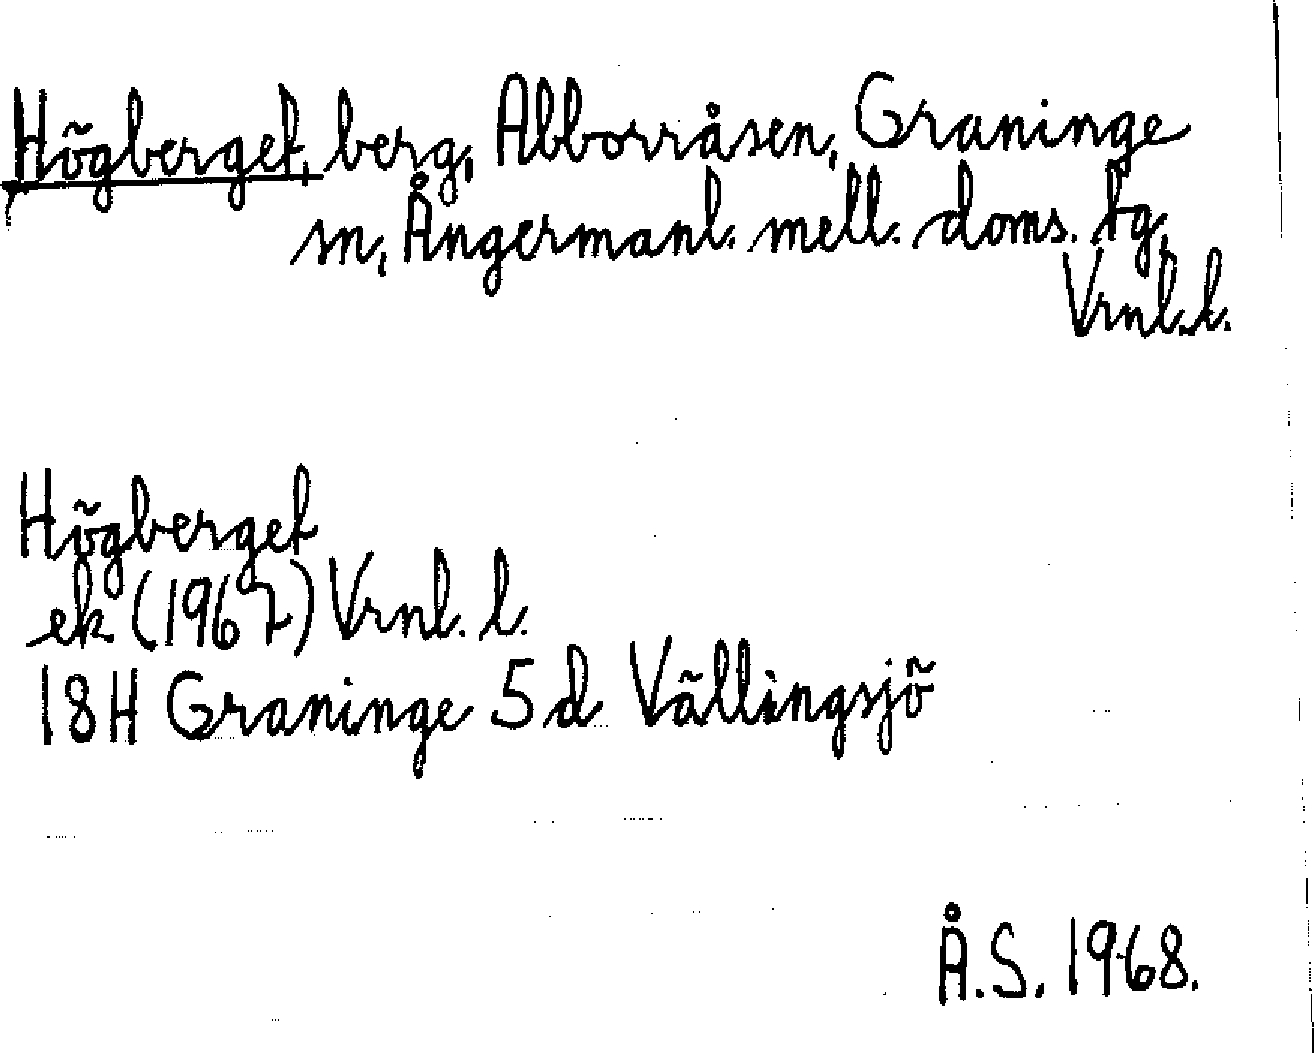 Högberget, berg, Abborråsen, Graninge
sn, Ångermanl. mell. doms. tg,
Vrnl.l.
Högberget
ek (1967) Vrnl. l.
18H Graninge 5d Vällingsjö
Å.S. 1968.